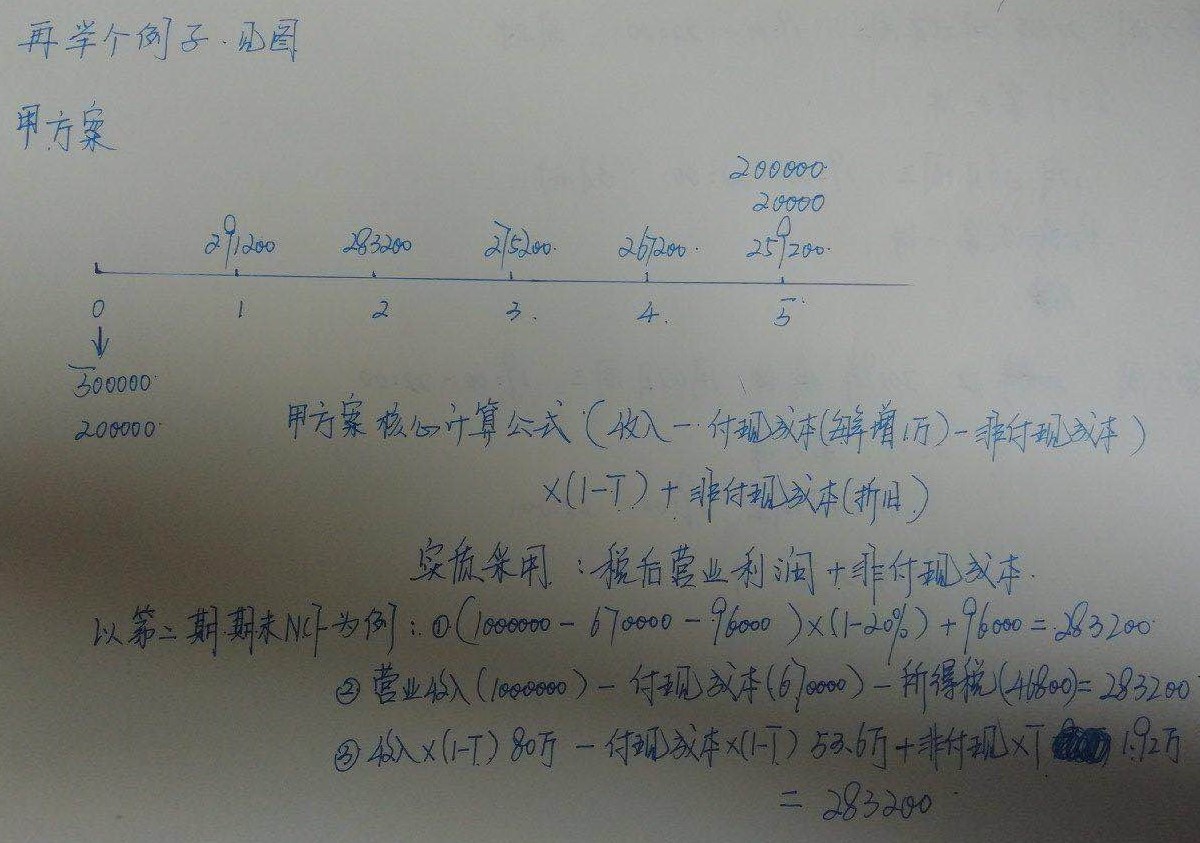 再举个例子.见图
甲方案
200000
20000
291200 283200 275200 267200 259200
0 1 2 3 4 5
500000
200000
甲方案核心计算公式(收入-付现成本(每年增1万)-非付现成本)
×(1-T)+非付现成本(折旧)
实质采用:税后营业利润+非付现成本.
以第二期期末NCF为例:①(1000000-670000-96000)×(1-20%)+96000=283200
②营业收入(1000000)-付现成本(670000)-所得税(46800)=283200
③收入×(1-T)80万-付现成本×(1-T)53.6万+非付现×T 1.92万
=283200